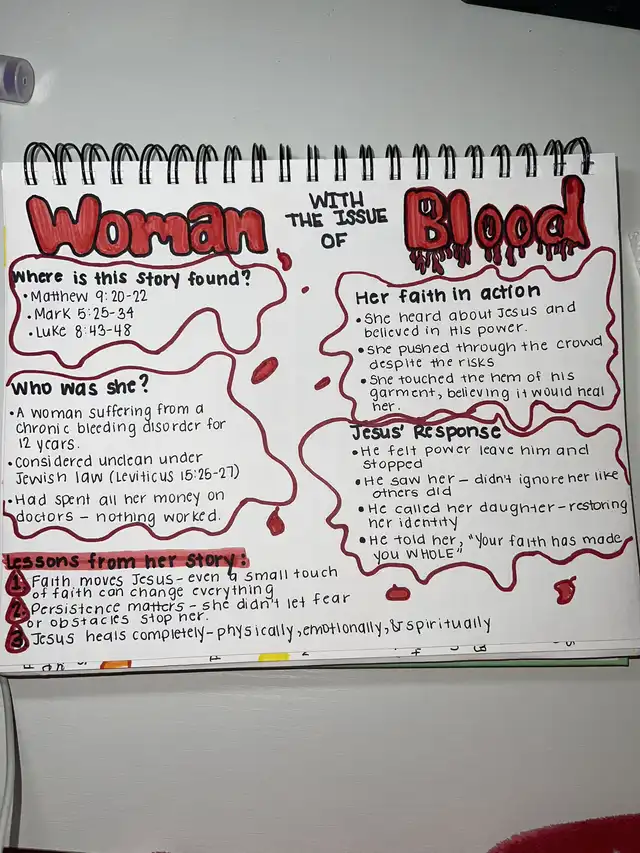 Woman
WITH
THE ISSUE
OF
Blood
Where is this story found?
• Matthew 9:20-22
• Mark 5:25-34
• Luke 8:43-48
Who was she?
• A woman suffering from a
chronic bleeding disorder for
12 years.
• Considered unclean under
Jewish law (Leviticus 15:25-27)
• Had spent all her money on
doctors - nothing worked.
Her faith in action
• She heard about Jesus and
believed in His power.
• She pushed through the crowd
despite the risks
• She touched the hem of his
garment, believing it would heal
her.
Jesus' Response
• He felt power leave him and
stopped
• He saw her - didn't ignore her like
others did
• He called her daughter - restoring
her identity
• He told her, "Your faith has made
you WHOLE"
Lessons from her story:
1. Faith moves Jesus - even a small touch
of faith can change everything
2. Persistence matters - she didn't let fear
or obstacles stop her.
3. Jesus heals completely - physically, emotionally, & spiritually